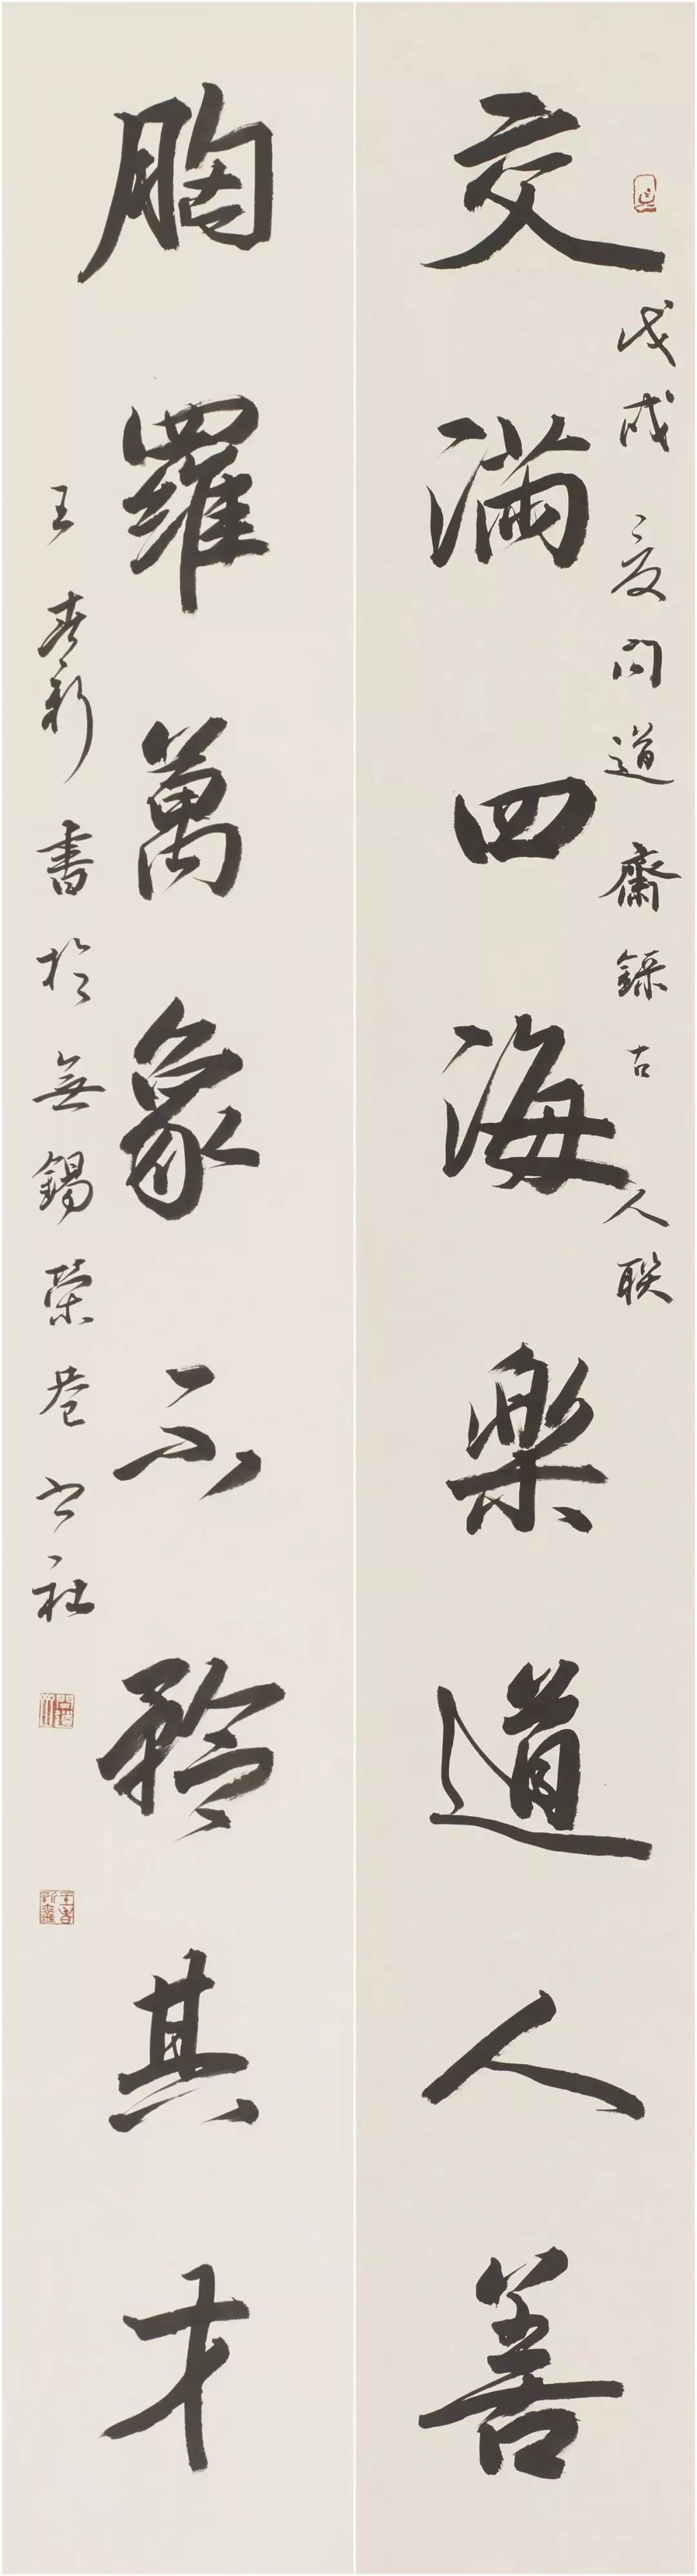 交滿四海樂道人善
戊戌夏問道齋錄古人聯
胸羅萬象不矜其才
王春新書於無錫榮巷書社